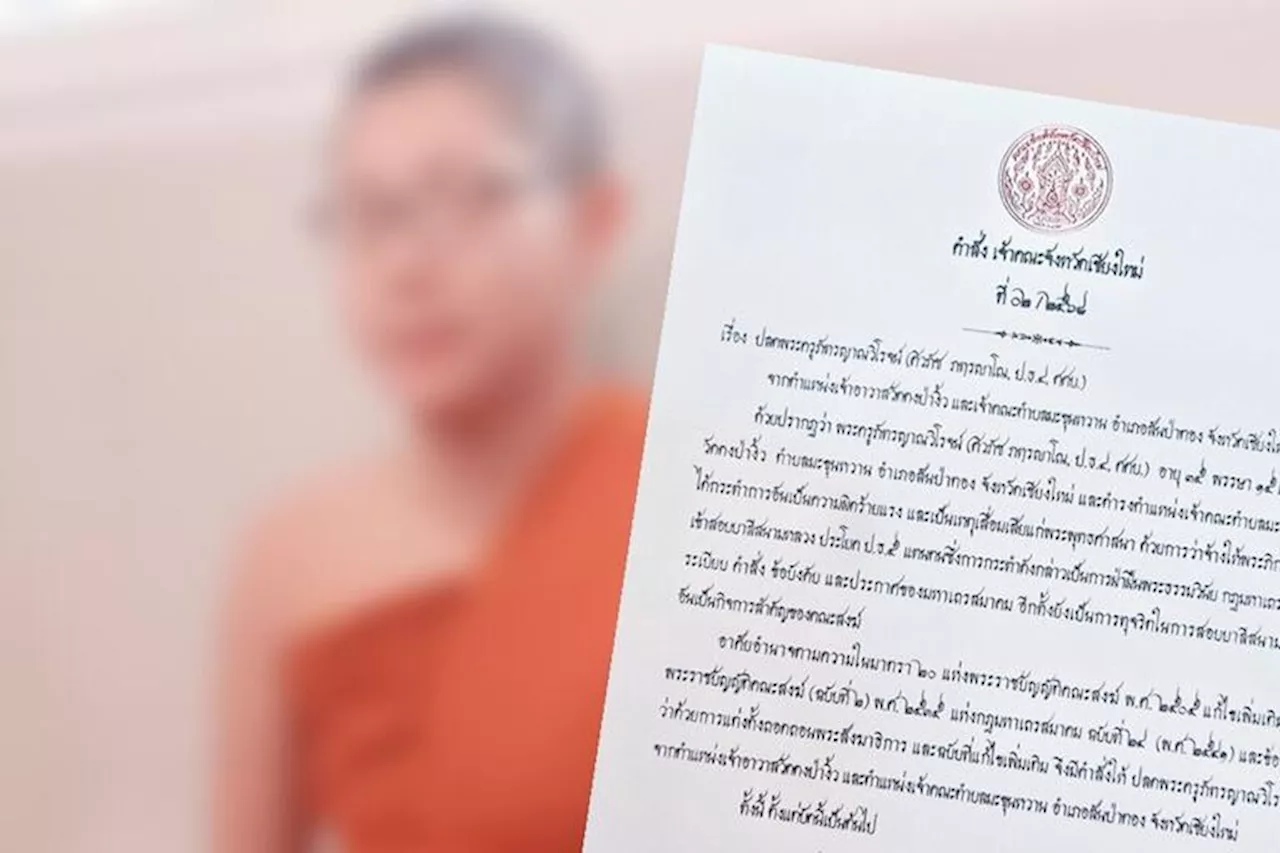 คำสั่ง เจ้าคณะจังหวัดเชียงใหม่
ที่ ๑๒ /๒๕๖๘
เรื่อง ปลดพระครูภัทรญาณวิโรจน์ (ศิวภัช ภทฺรญาโณ, ป.ธ.๔, ศศบ.)
จากตำแหน่งเจ้าอาวาสวัดดงป่างิ้ว และเจ้าคณะตำบลมะขุนหวาน อำเภอสันป่าตอง จังหวัดเชียงให
ด้วยปรากฏว่า พระครูภัทรญาณวิโรจน์ (ศิวภัช ภทฺรญาโณ, ป.ธ.๔, ศศบ.) อายุ ๓๕ พรรษา ๑๕
วัดดงป่างิ้ว ตำบลมะขุนหวาน อำเภอสันป่าตอง จังหวัดเชียงใหม่ และดำรงตำแหน่งเจ้าคณะตำบลมะ
ได้กระทำการอันเป็นความผิดร้ายแรง และเป็นเหตุเสื่อมเสียแก่พระพุทธศาสนา ด้วยการว่าจ้างให้พระภิก
เข้าสอบบาลีสนามหลวง ประโยค ป.ธ.๕ แทนตนซึ่งการกระทำดังกล่าวเป็นการฝ่าฝืนพระธรรมวินัย กฎมหาเถร
ระเบียบ คำสั่ง ข้อบังคับ และประกาศของมหาเถรสมาคม อีกทั้งยังเป็นการทุจริตในการสอบบาลีสนาม
อันเป็นกิจการสำคัญของคณะสงฆ์
อาศัยอำนาจตามความในมาตรา ๒๐ แห่งพระราชบัญญัติคณะสงฆ์ พ.ศ. ๒๕๐๕ แก้ไขเพิ่มเติม
พระราชบัญญัติคณะสงฆ์ (ฉบับที่ ๒) พ.ศ. ๒๕๓๕ แห่งกฎมหาเถรสมาคม ฉบับที่ ๒๔ (พ.ศ. ๒๕๔๑) และข้อ
ว่าด้วยการแต่งตั้งถอดถอนพระสังฆาธิการ และฉบับที่แก้ไขเพิ่มเติม จึงมีคำสั่งให้ ปลดพระครูภัทรญาณวิโร
จากตำแหน่งเจ้าอาวาสวัดดงป่างิ้ว และตำแหน่งเจ้าคณะตำบลมะขุนหวาน อำเภอสันป่าตอง จังหวัดเชียงใหม่
ทั้งนี้ ตั้งแต่บัดนี้เป็นต้นไป